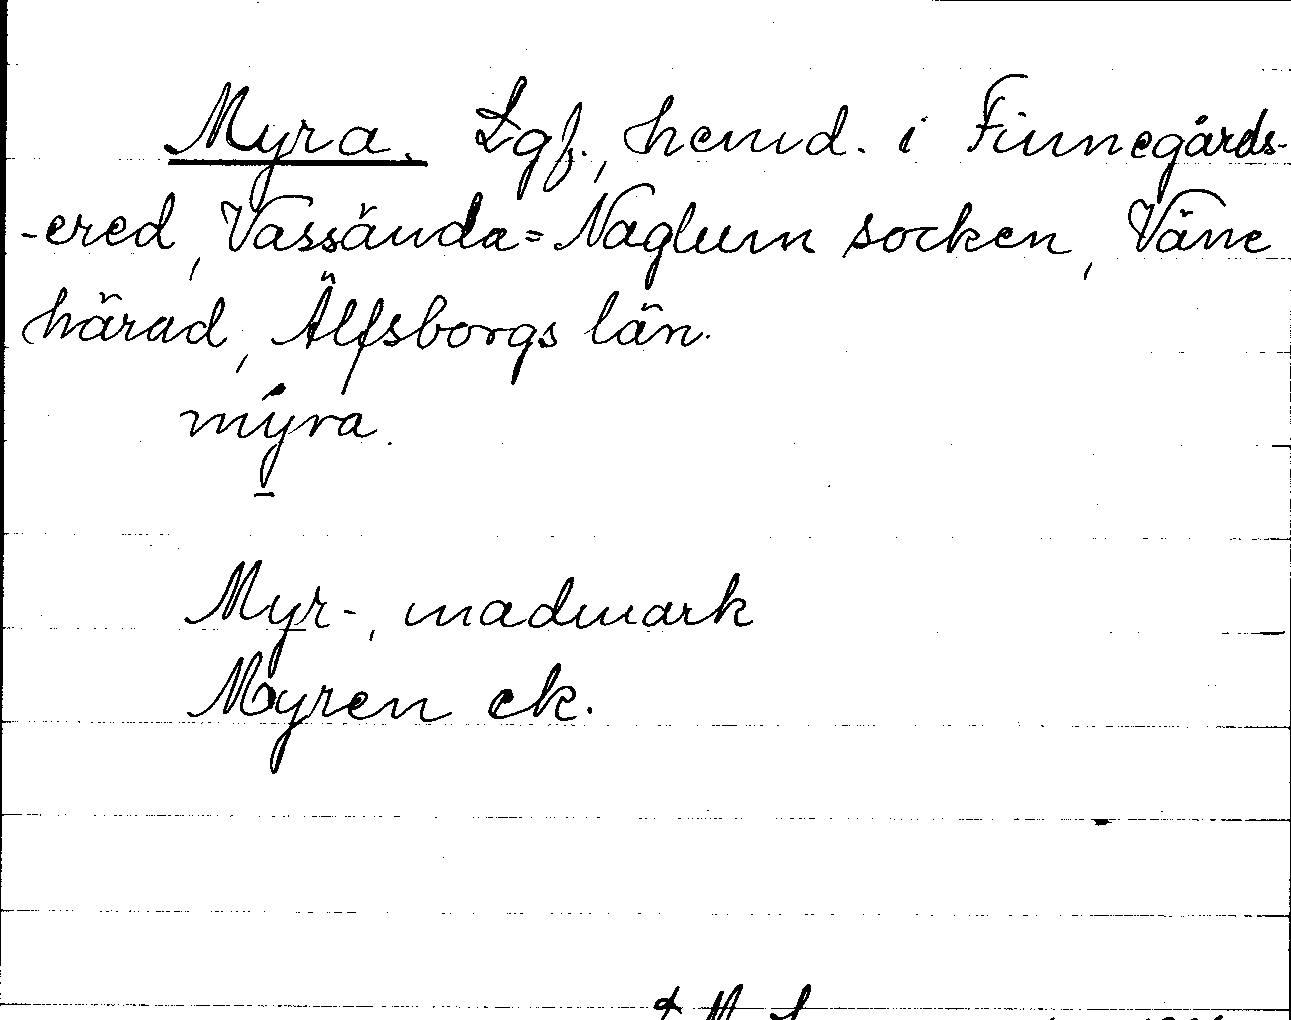 Myra. Lgf., hemd. i Finnegårds-
-ered, Vassända=Naglum socken, Väne
härad, Älfsborgs län.
mýra.
Myr-, madmark
Myren ek.